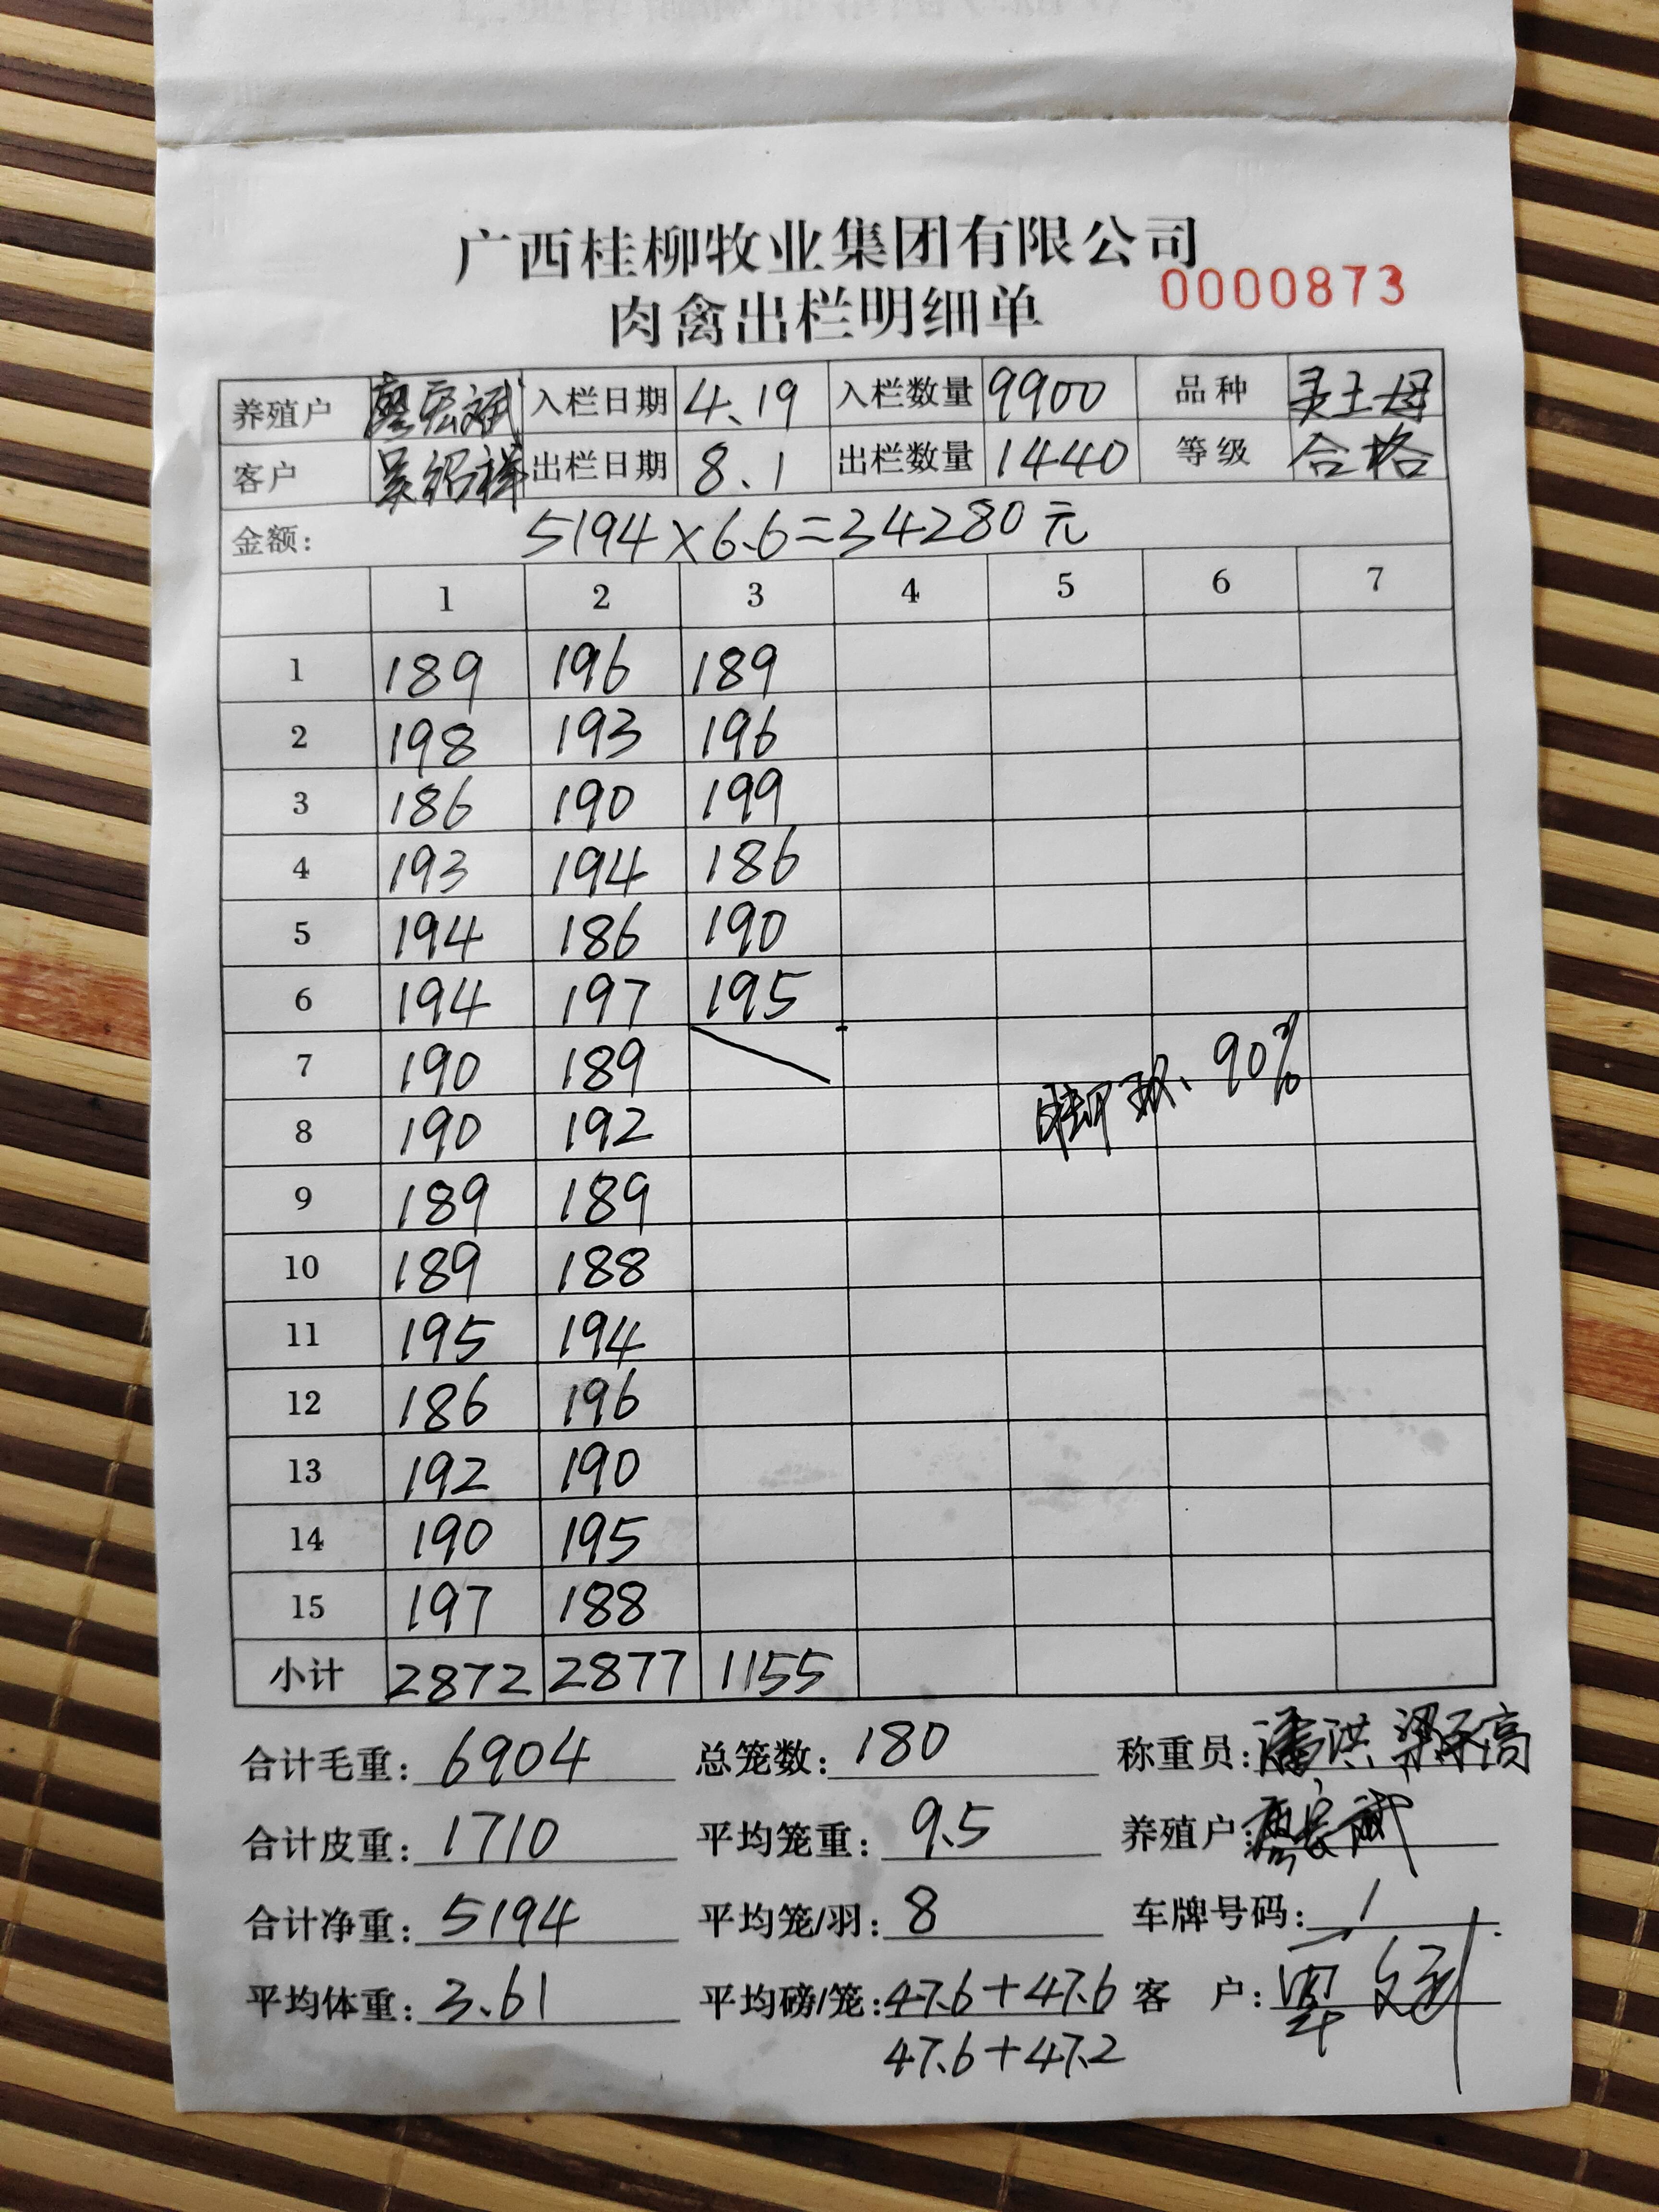 广西桂柳牧业集团有限公司
肉禽出栏明细单 0000873
养殖户 廖宏斌 入栏日期 4.19 入栏数量 9900 品种 灵土母
客户 吴绍祥 出栏日期 8.1 出栏数量 1440 等级 合格
金额: 5194×6.6=34280元
1 2 3 4 5 6 7
1 189 196 189
2 198 193 196
3 186 190 199
4 193 194 186
5 194 186 190
6 194 197 195
7 190 189
8 190 192 90%
9 189 189
10 189 188
11 195 194
12 186 196
13 192 190
14 190 195
15 197 188
小计 2872 2877 1155
合计毛重: 6904 总笼数: 180 称重员: 潘洪
合计皮重: 1710 平均笼重: 9.5 养殖户:
合计净重: 5194 平均笼/羽: 8 车牌号码:
平均体重: 3.61 平均磅/笼: 47.6+47.6 客 户:
47.6+47.2